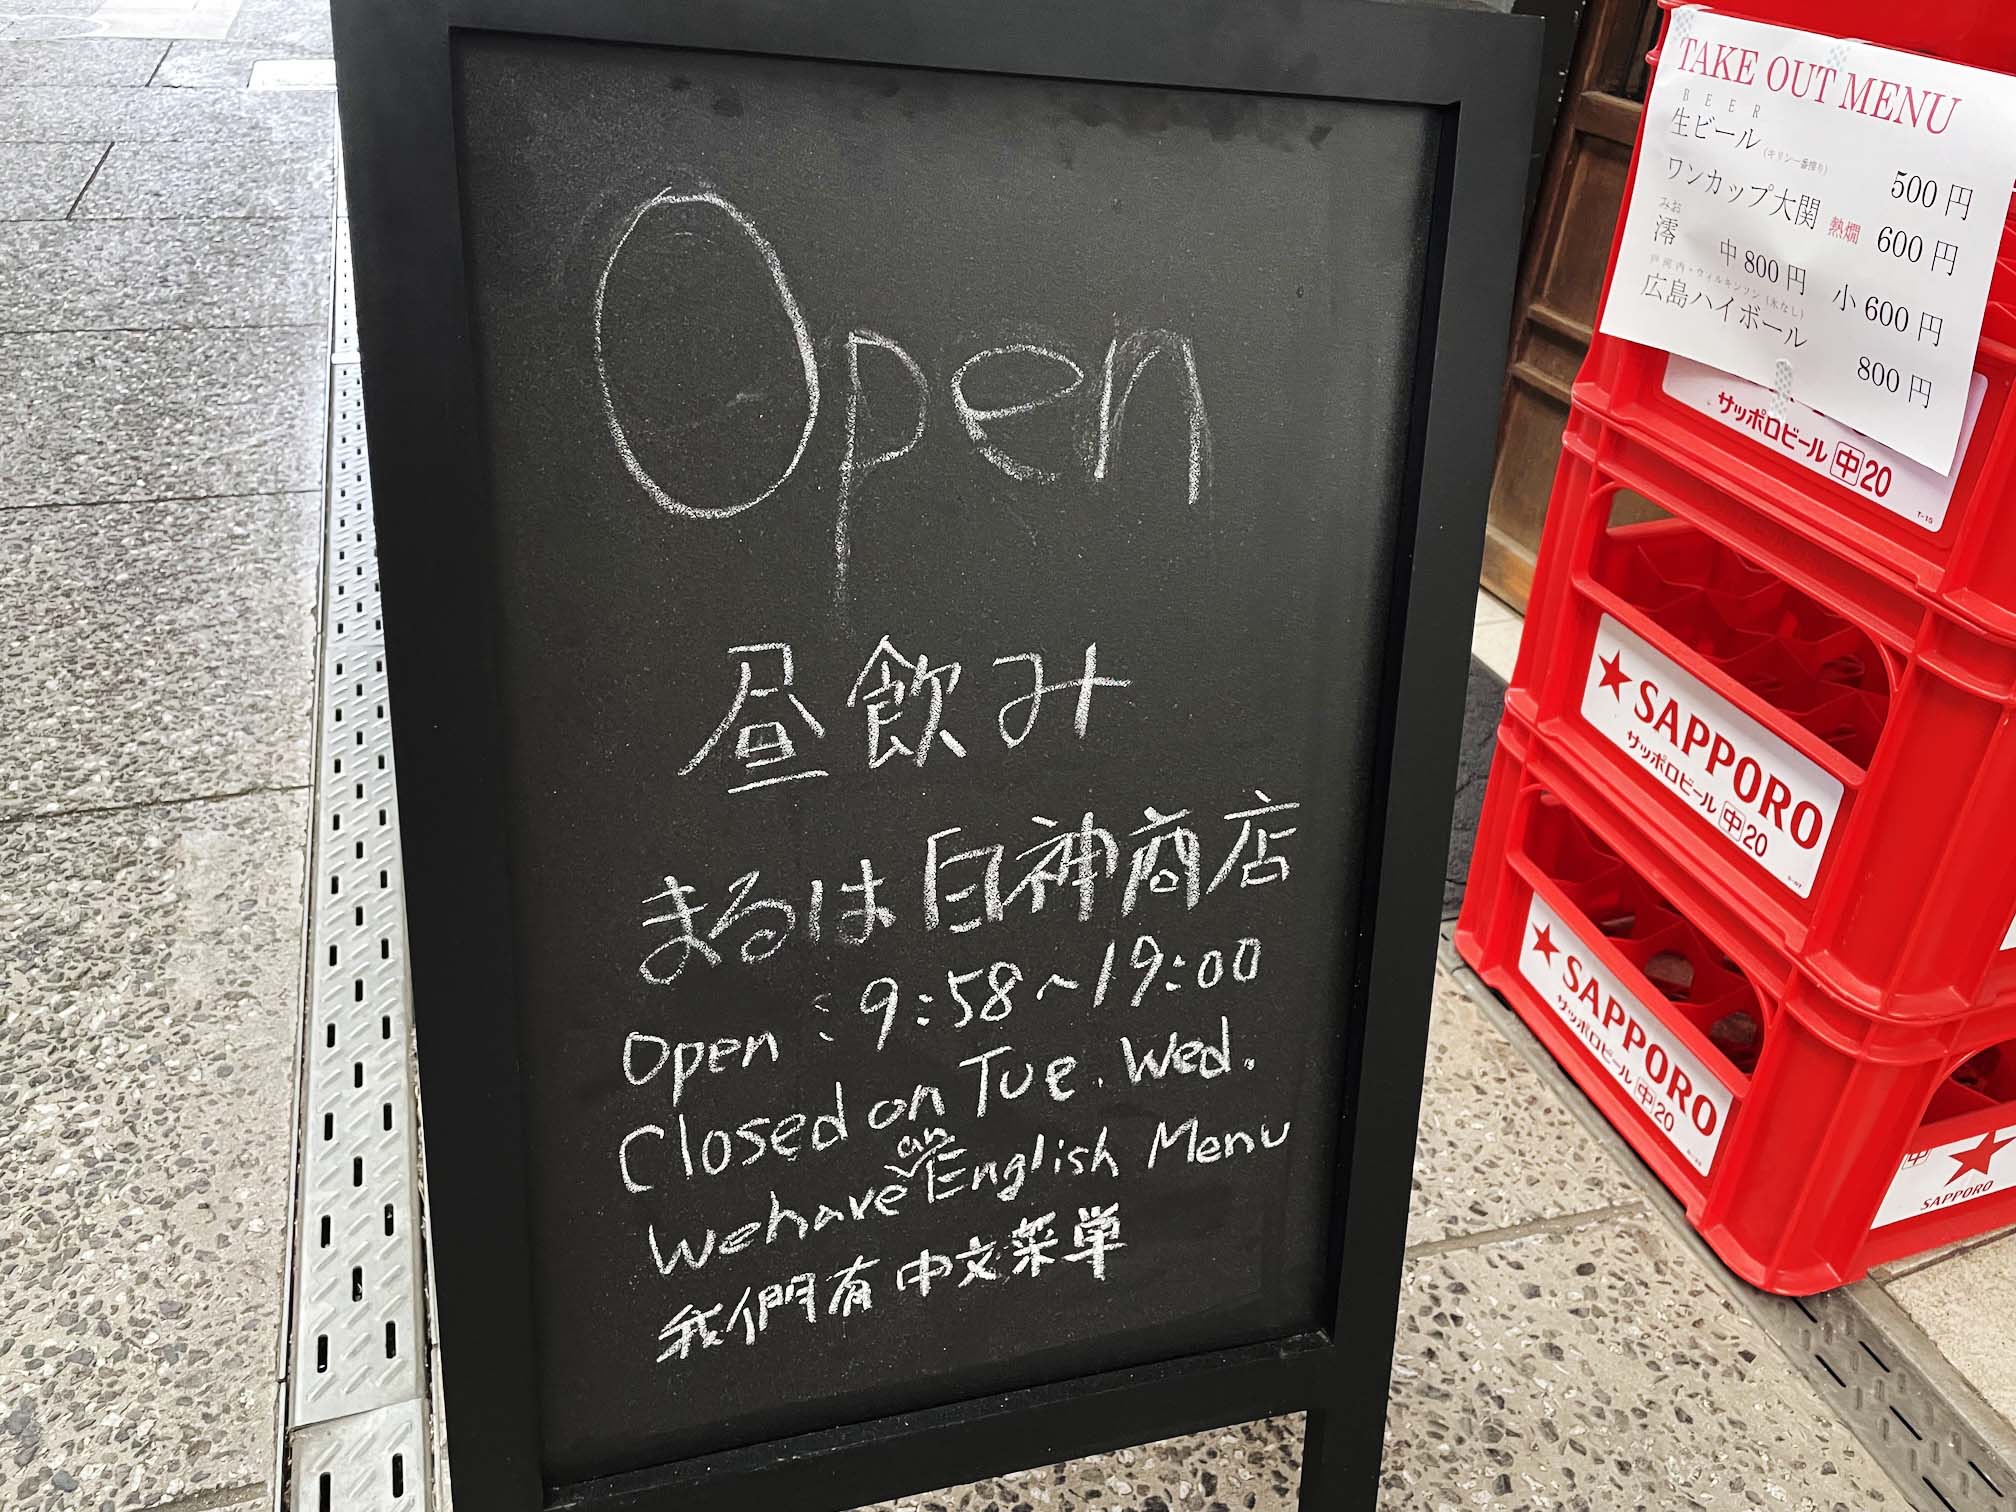 Open
昼飲み
まるは自神商店
Open : 9:58~19:00
Closed on Tue. Wed.
We have an English Menu
我們有中文菜単
TAKE OUT MENU
BEER
生ビール (キリン一番搾り) 500円
ワンカップ大関 熱燗 600円
みお
澪 中800円 小600円
戸河内・ウィルキンソン (氷なし)
広島ハイボール 800円
サッポロビール 中 20
T-15
★SAPPORO
サッポロビール 中 20
★SAPPORO
サッポロビール 中 20
中
★
SAPPORO